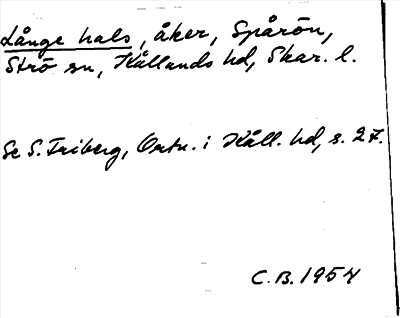 Långe hals, åker, Spårön,
Strö sn, Kållands hd, Skar. l.
Se S. Friberg, Ortn. i Kåll. hd, s. 27.
C.B. 1954